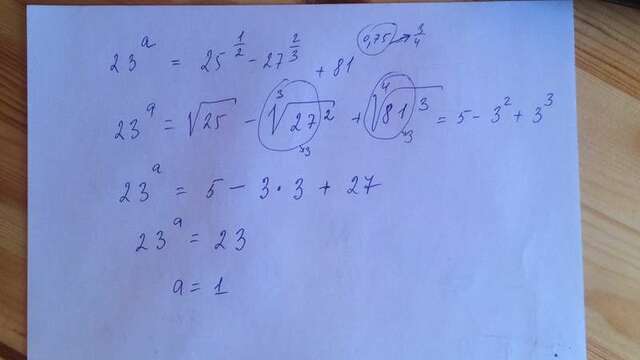 23^a = 25^{1/2} - 27^{2/3} + 81^{0,75 → 3/4}
23^a = √25 - ∛27² + ∜81³ = 5 - 3² + 3³
3 3
23^a = 5 - 3·3 + 27
23^a = 23
a = 1